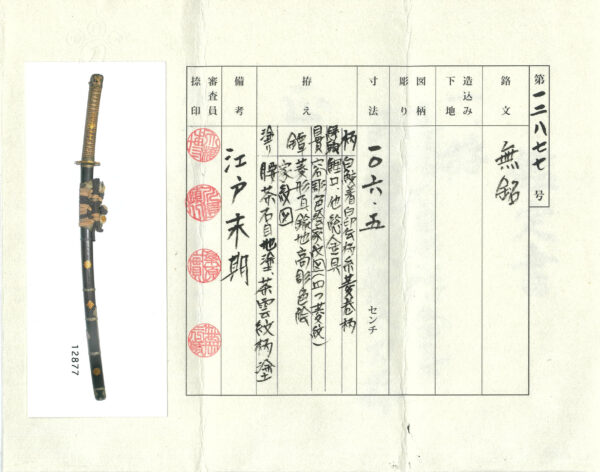 第一二八七七号
銘文
無銘
造込み
下地
図柄
彫り
寸法
一〇六・五
センチ
拵え
柄 白鮫着白印伝柄糸黄巻柄
鯉口、他総金具
目貫容彫色絵家紋図(四つ菱紋)
鐔菱形真鍮地高彫色絵
家紋図
塗り腰茶石目地塗茶雲紋柄塗
備考
江戸末期
審査員
捺印
12877